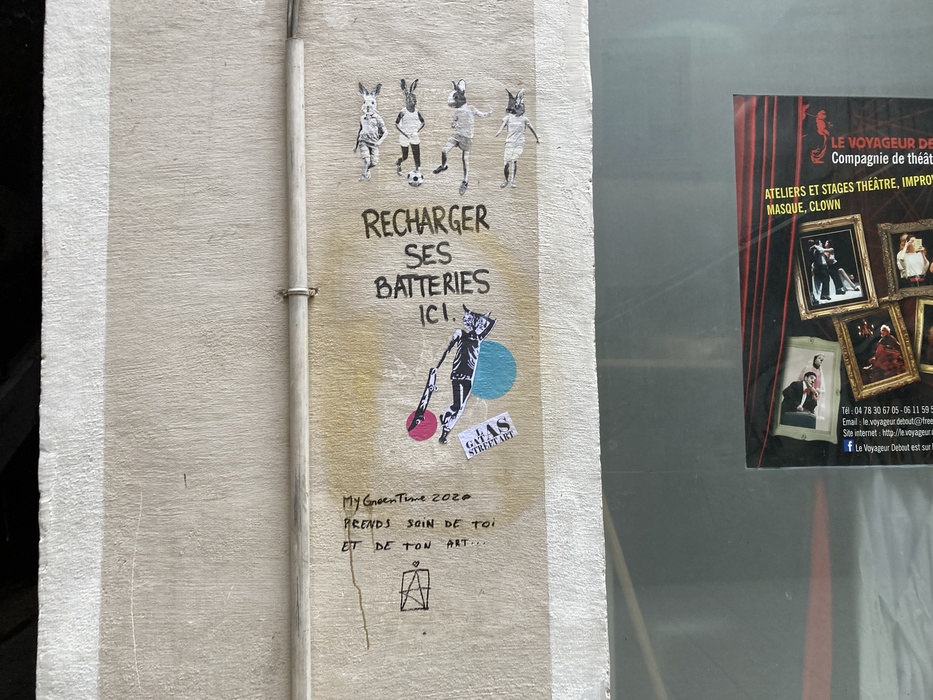 RECHARGER
SES
BATTERIES
ICI.
LE
GAT AS
STREET ART
MyGreenTime 2020
PRENDS SOIN DE TOI
ET DE TON ART...
LE VOYAGEUR DE
Compagnie de théât
ATELIERS ET STAGES THÉÂTRE, IMPROV
MASQUE, CLOWN
Tél : 04 78 30 67 05 - 06 11 59 5
Email : le.voyageur.debout@free
Site internet : http://le.voyageur.d
Le Voyageur Debout est sur